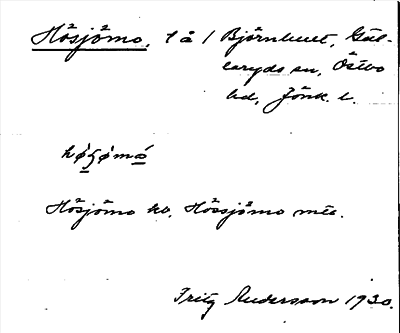 Hösjömo, t å 1 Björnhult, Gäl-
laryds sn, Östbo
hd, Jönk. l.
hǿʃǿmǿ
Hösjömo kb. Hössjömo mtr.
Fritz Andersson 1930.